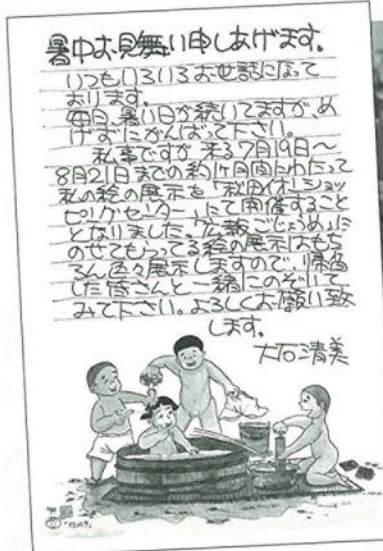 暑中お見舞い申しあげます。
いつもいろいろお世話になって
おります。
毎日、暑い日が続いてますが、め
げずにがんばって下さい。
私事ですが 来る7月19日〜
8月21日までの約1ヶ月間にわたって
私の絵の展示を「秋田イオンショッ
ピングセンター」にて開催すること
となりました。「広報ごじょうめ」に
のせてもらってる絵の展示はもち
ろん色々展示しますので、帰省
した皆さんと一緒にのぞいて
みて下さい。よろしくお願い致
します。
大石清美